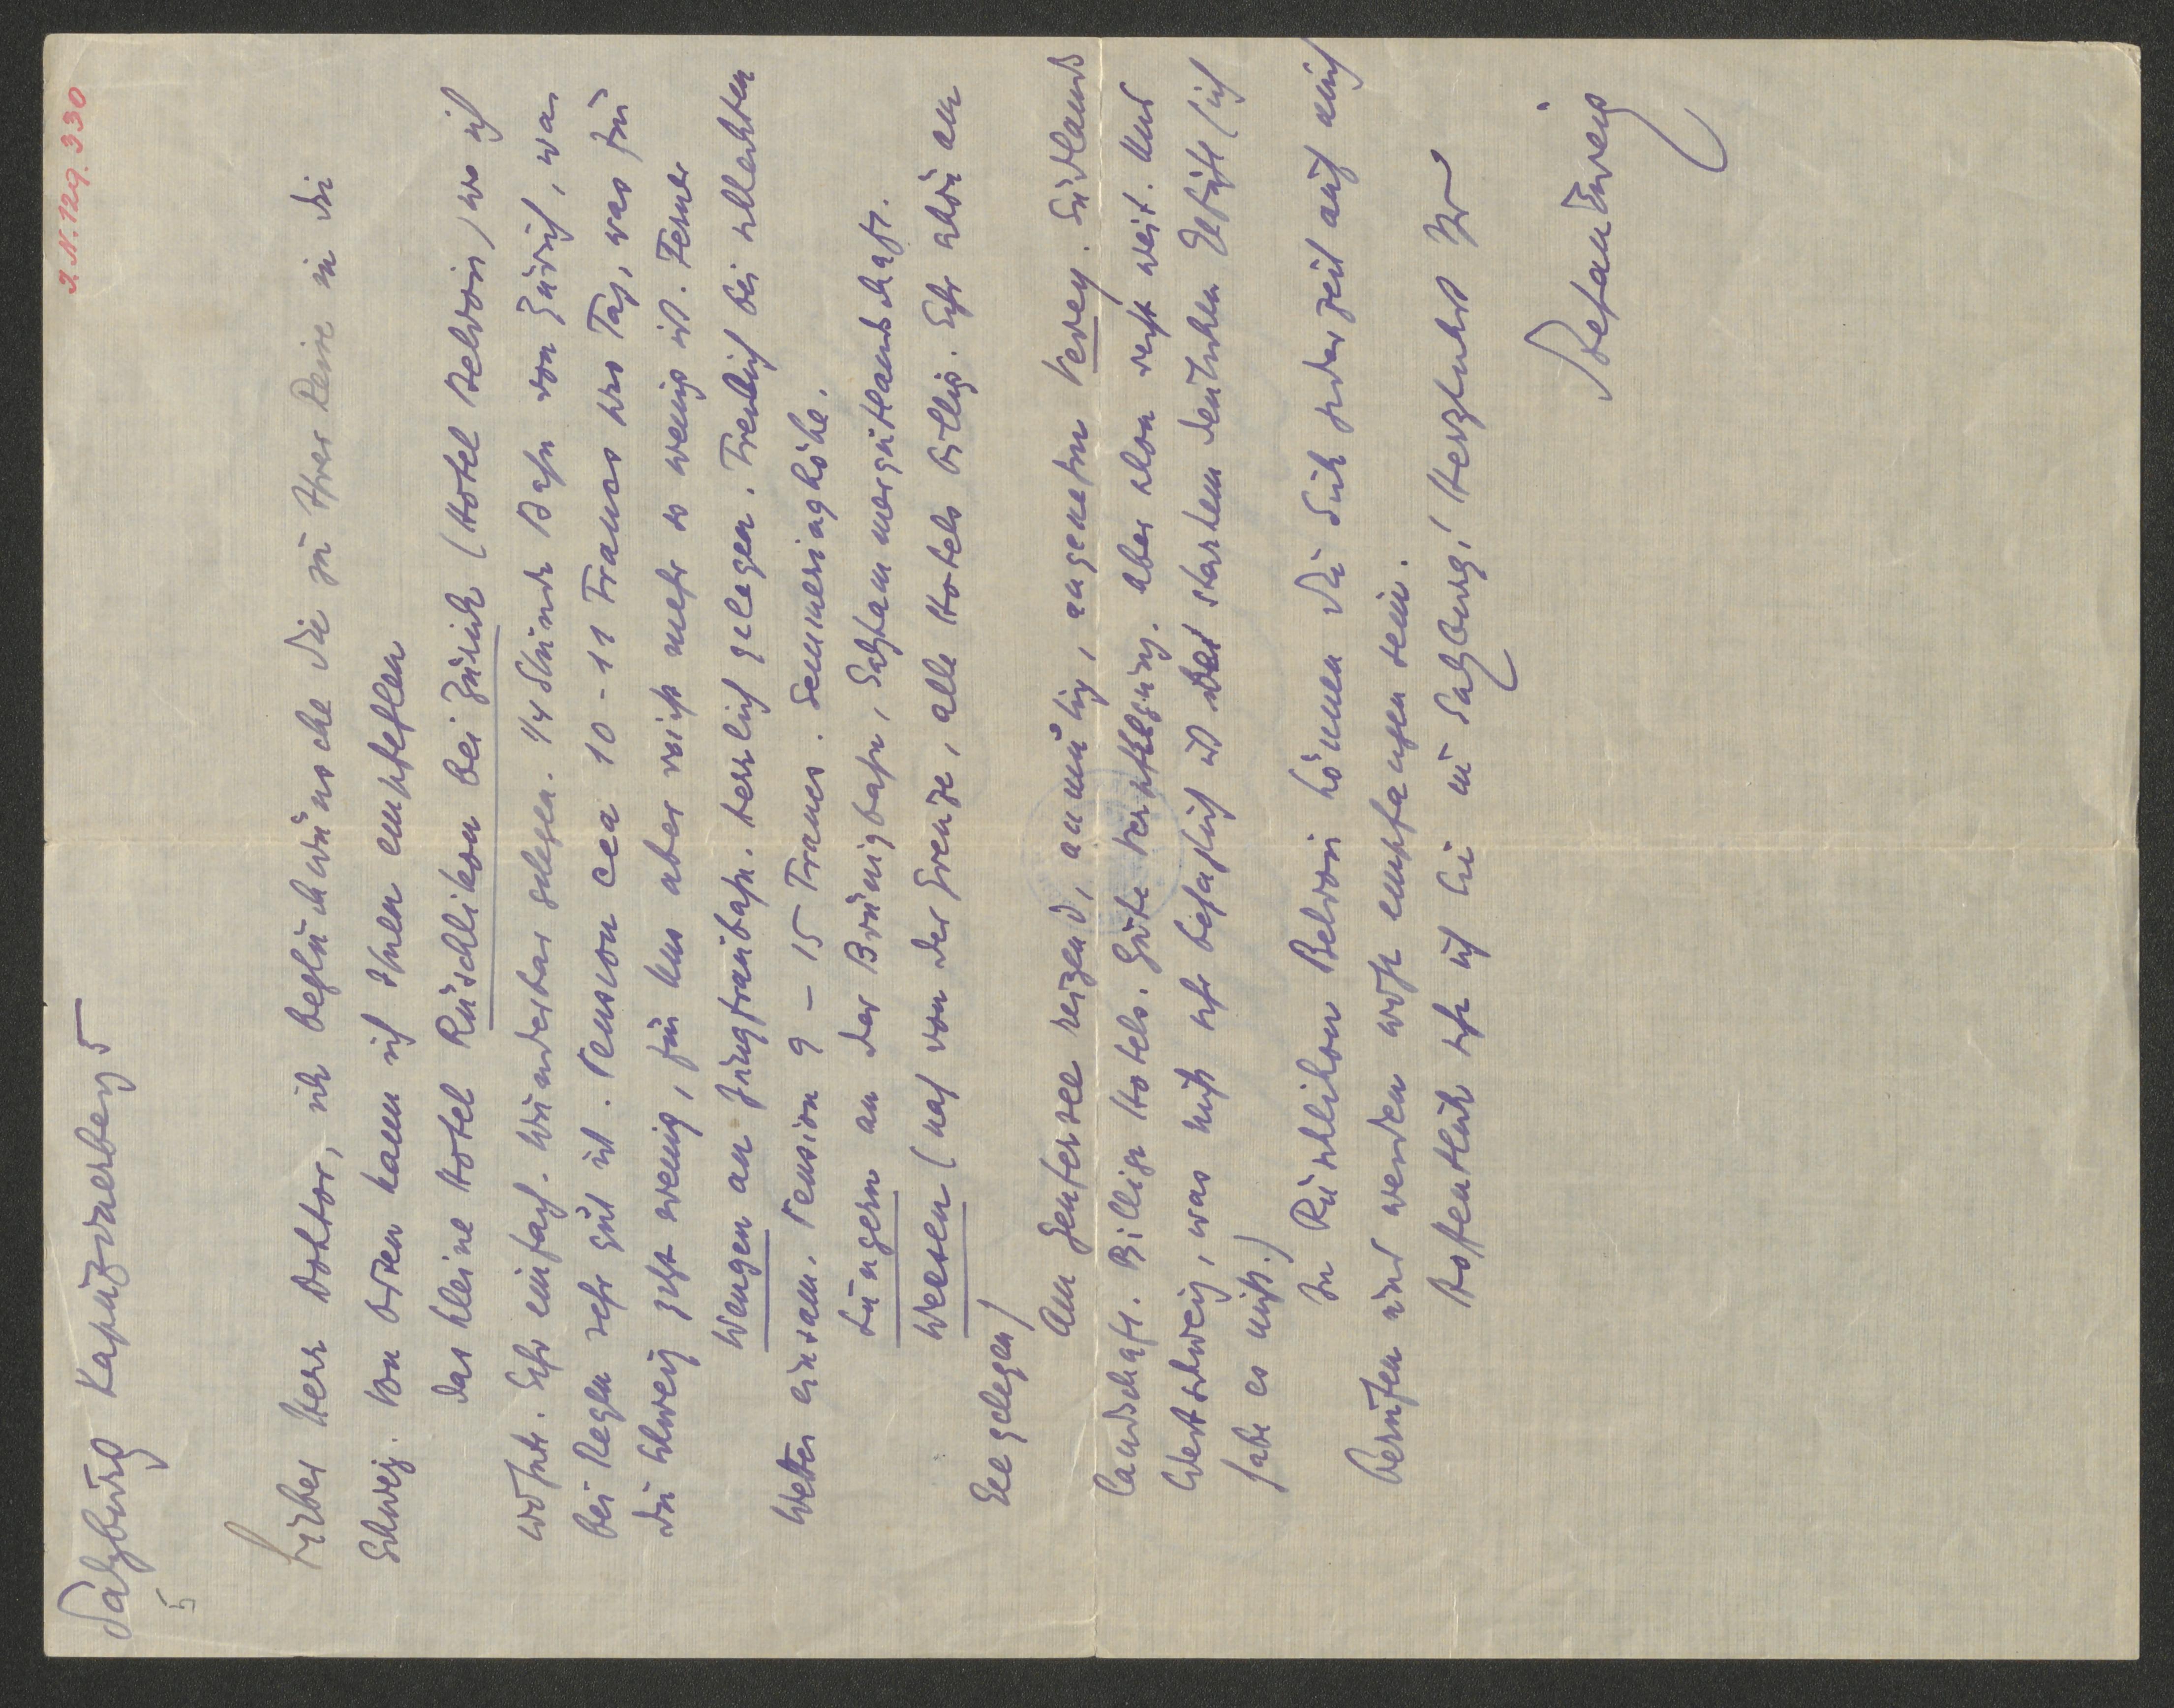 I. N. 129.330
Salzburg Kapuzinerberg 5
5
Lieber Herr Doktor, ich beglückwünsche Sie zu Ihrer Reise in die
Schweiz. Von Orten kann ich Ihnen empfehlen
das kleine Hotel Rüschlikon bei Zürich (Hotel Belvoir) wo ich
wohnte. Sehr einfach. Wunderbar gelegen. 1/4 Stunde Bahn von Zürich, was
bei Regen sehr gut ist. Pension cca 10 - 11 Francs pro Tag, was für
die Schweiz sehr wenig, für uns aber nicht mehr so wenig ist. Ferner
Wengen an Jungfraubahn. Herrlich gelegen. Freilich bei schlechtem
Wetter einsam. Pension 9 - 15 Francs. Semmeringhöhe.
Lungern an der Brünigbahn, Salzkammergutlandschaft.
Weesen (nah von der Grenze, alle Hotels billig. Sehr schön am
See gelegen)
Am Genfersee reizend, anmutig, angenehm Vevey. Südlands
landschaft. Billige Hotels. Gute Verpflegung. Aber schon recht weit. Und
Westschweiz, was nicht sehr behaglich ist bei starkem deutschen Gefühl (ich
habe es nicht.)
In Rüschlikon Belvoir können Sie sich jederzeit auf mich
berufen und werden wohl empfangen sein.
Hoffentlich seh ich Sie in Salzburg! Herzlichst Ihr
Stefan Zweig